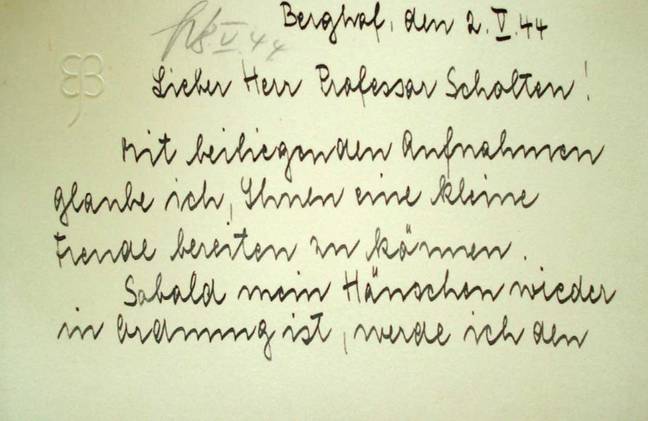 Berghof, den 2.V.44
8.V.44
Lieber Herr Professor Scholten!
Mit beiliegenden Aufnahmen
glaube ich, Ihnen eine kleine
Freude bereiten zu können.
Sobald mein Häuschen wieder
in Ordnung ist, werde ich den